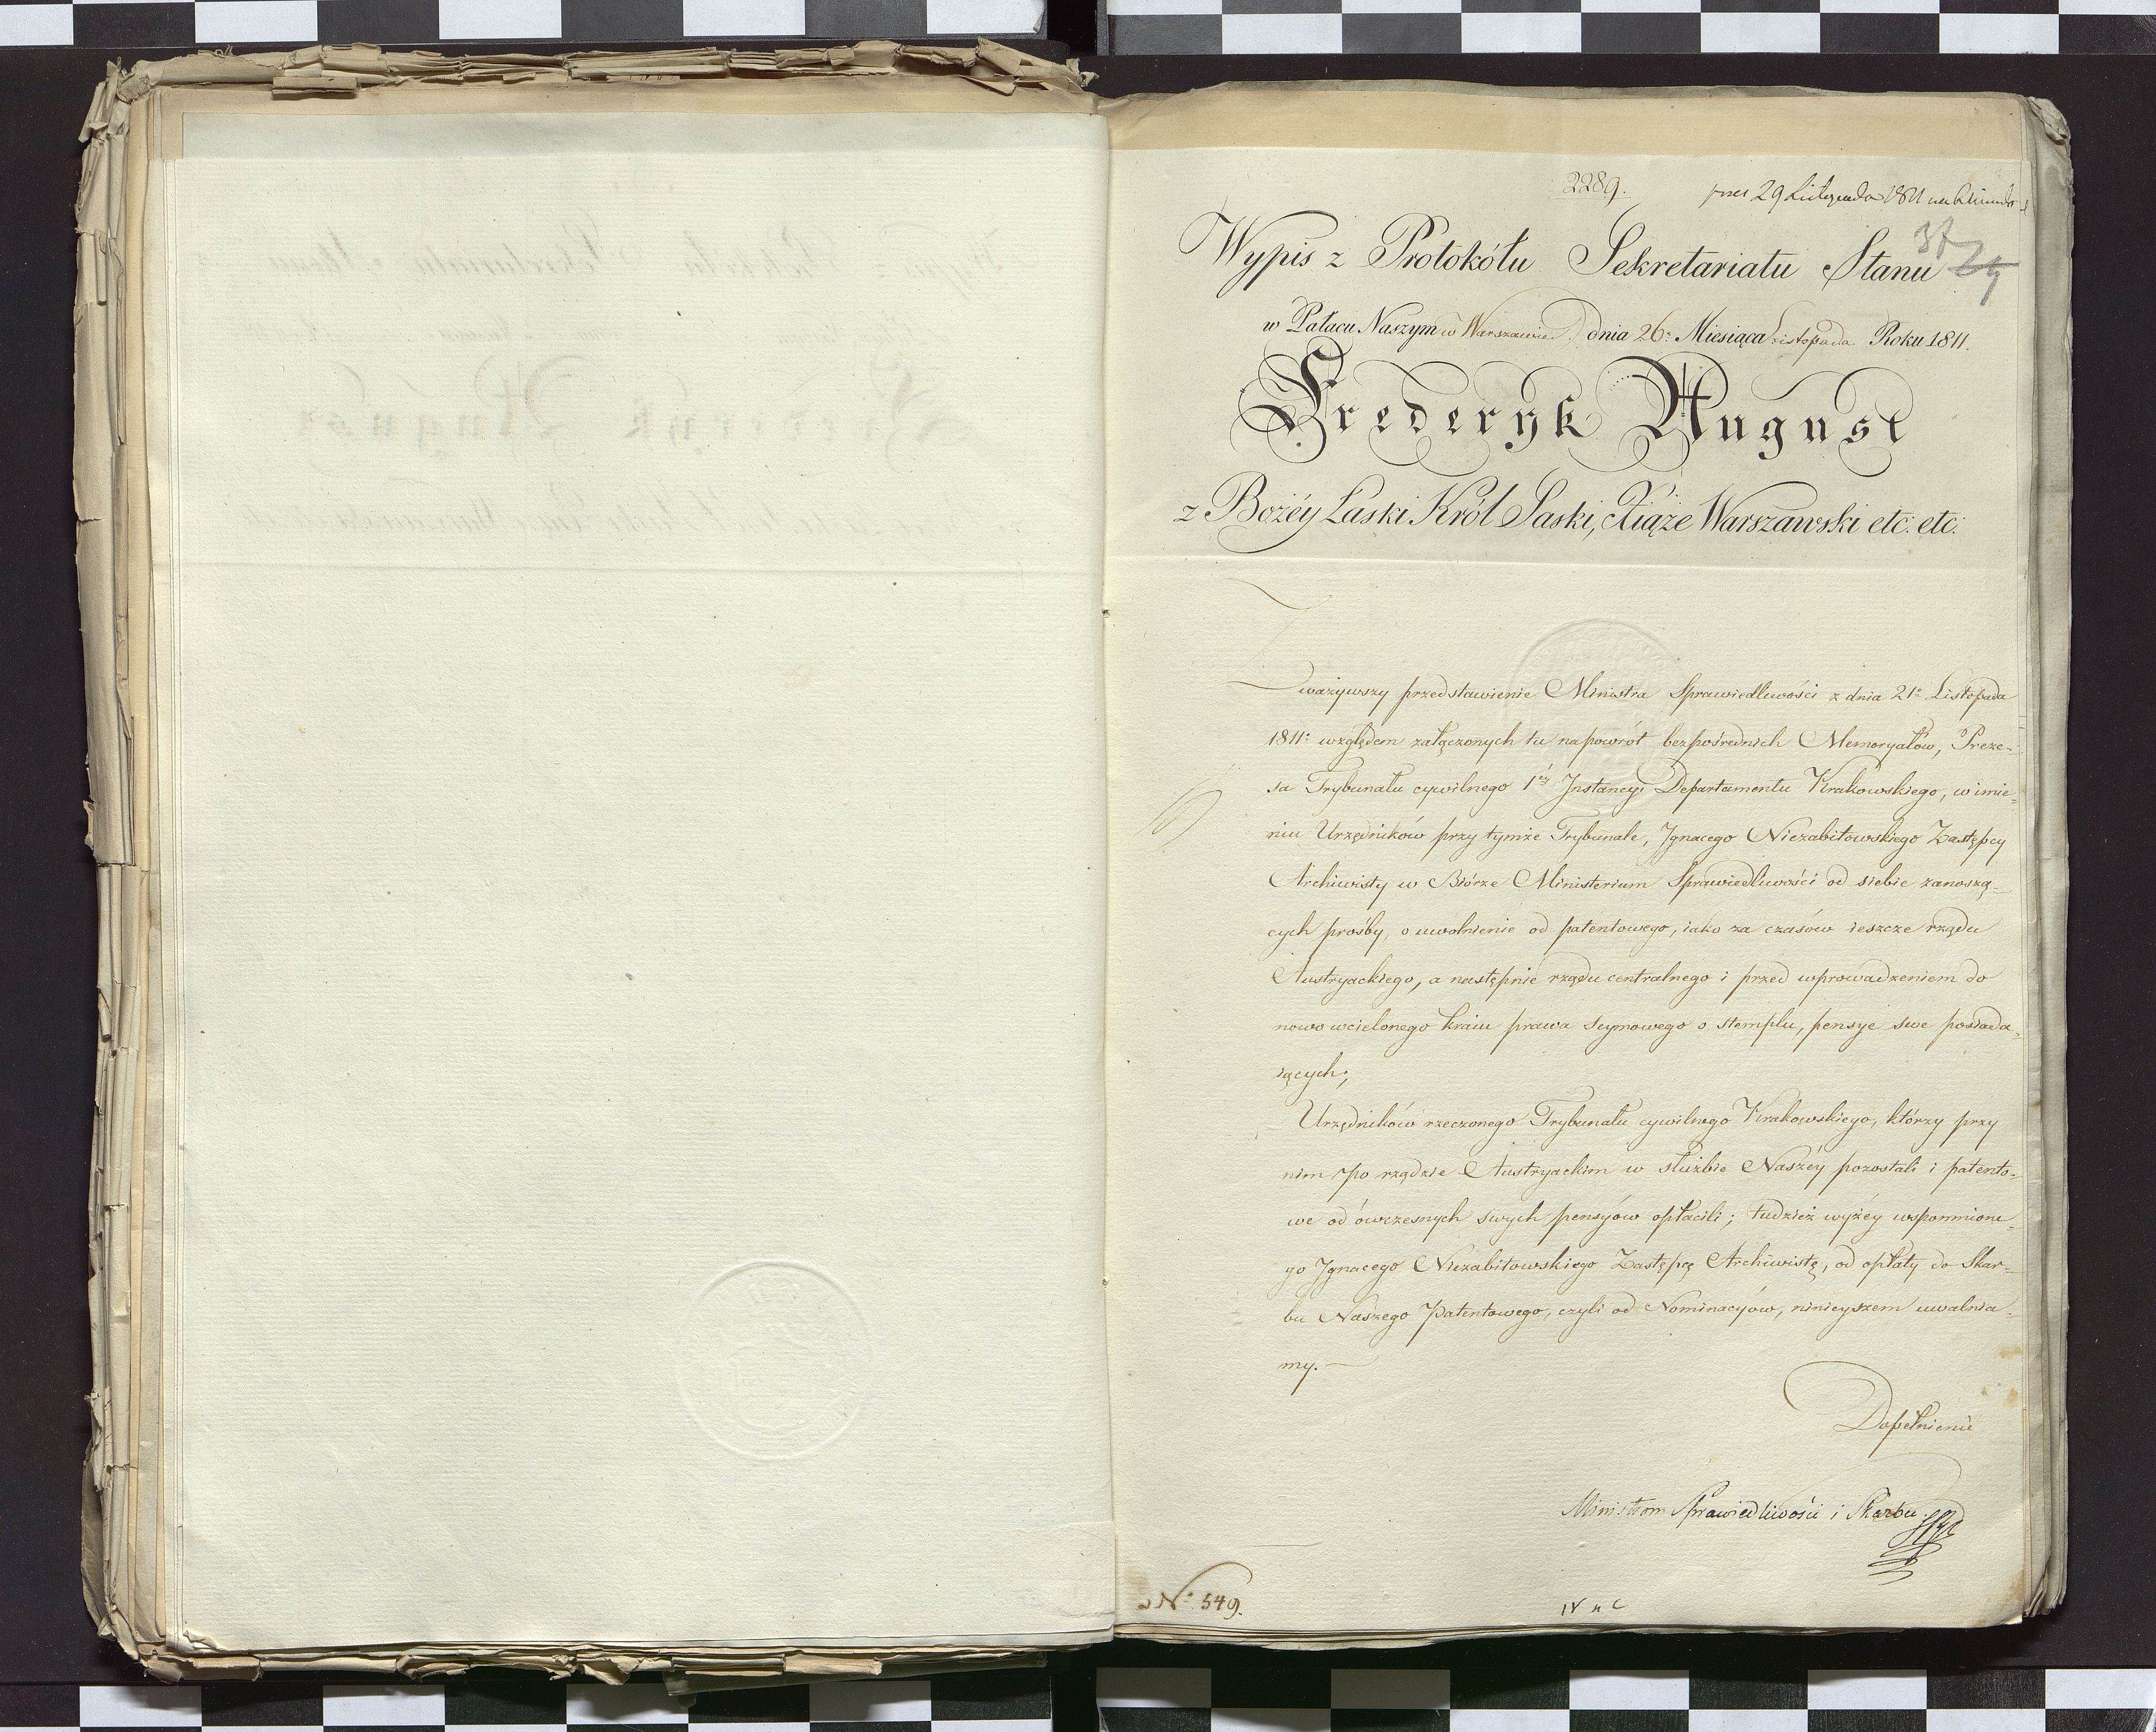 2289.
29 Listopada 1811
37 29
Wypis z Protokółu Sekretariatu Stanu
w Pałacu Naszym w Warszawie dnia 26º Miesiąca Listopada Roku 1811.
Frederyk August
z Bożéy Łaski Król Saski, Xiąże Warszawski etc: etc:
Zważywszy przedstawienie Ministra Sprawiedliwości z dnia 21º Listopada
1811: względem załączonych tu napowrót bezpośrednich Memoryałów, Preze-
sa Trybunału cywilnego 1éy Jnstancyi Departamentu Krakowskiego, w imie-
niu Urzędników przy tymże Trybunale, Jgnacego Niezabitowskiego Zastępcy
Archiwisty w Biórze Ministerium Sprawiedliwości od siebie zanoszą-
cych prośby, o uwolnienie od patentowego, iako za czasów ieszcze rządu
Austryackiego, a następnié rządu centralnego i przed wprowadzeniem do
nowo wcielonego kraiu prawa seymowego o stemplu, pensye swe posiada-
iących;
Urzędników rzeczonego Trybunału cywilnego Krakowskiego, którzy przy
nim po rządzie Austryackim w służbie Naszéy pozostali i patento-
we od ówczesnych swych pensyów opłacili; tudzież wyżéy wspomnione-
go Jgnacego Niezabitowskiego Zastępcę Archiwistę, od opłaty do Skar-
bu Naszego Patentowego, czyli od Nominacyów, ninieyszem uwalnia-
my.
Dopełnienie
Ministrom Sprawiedliwości i Skarbu
Nº 549.